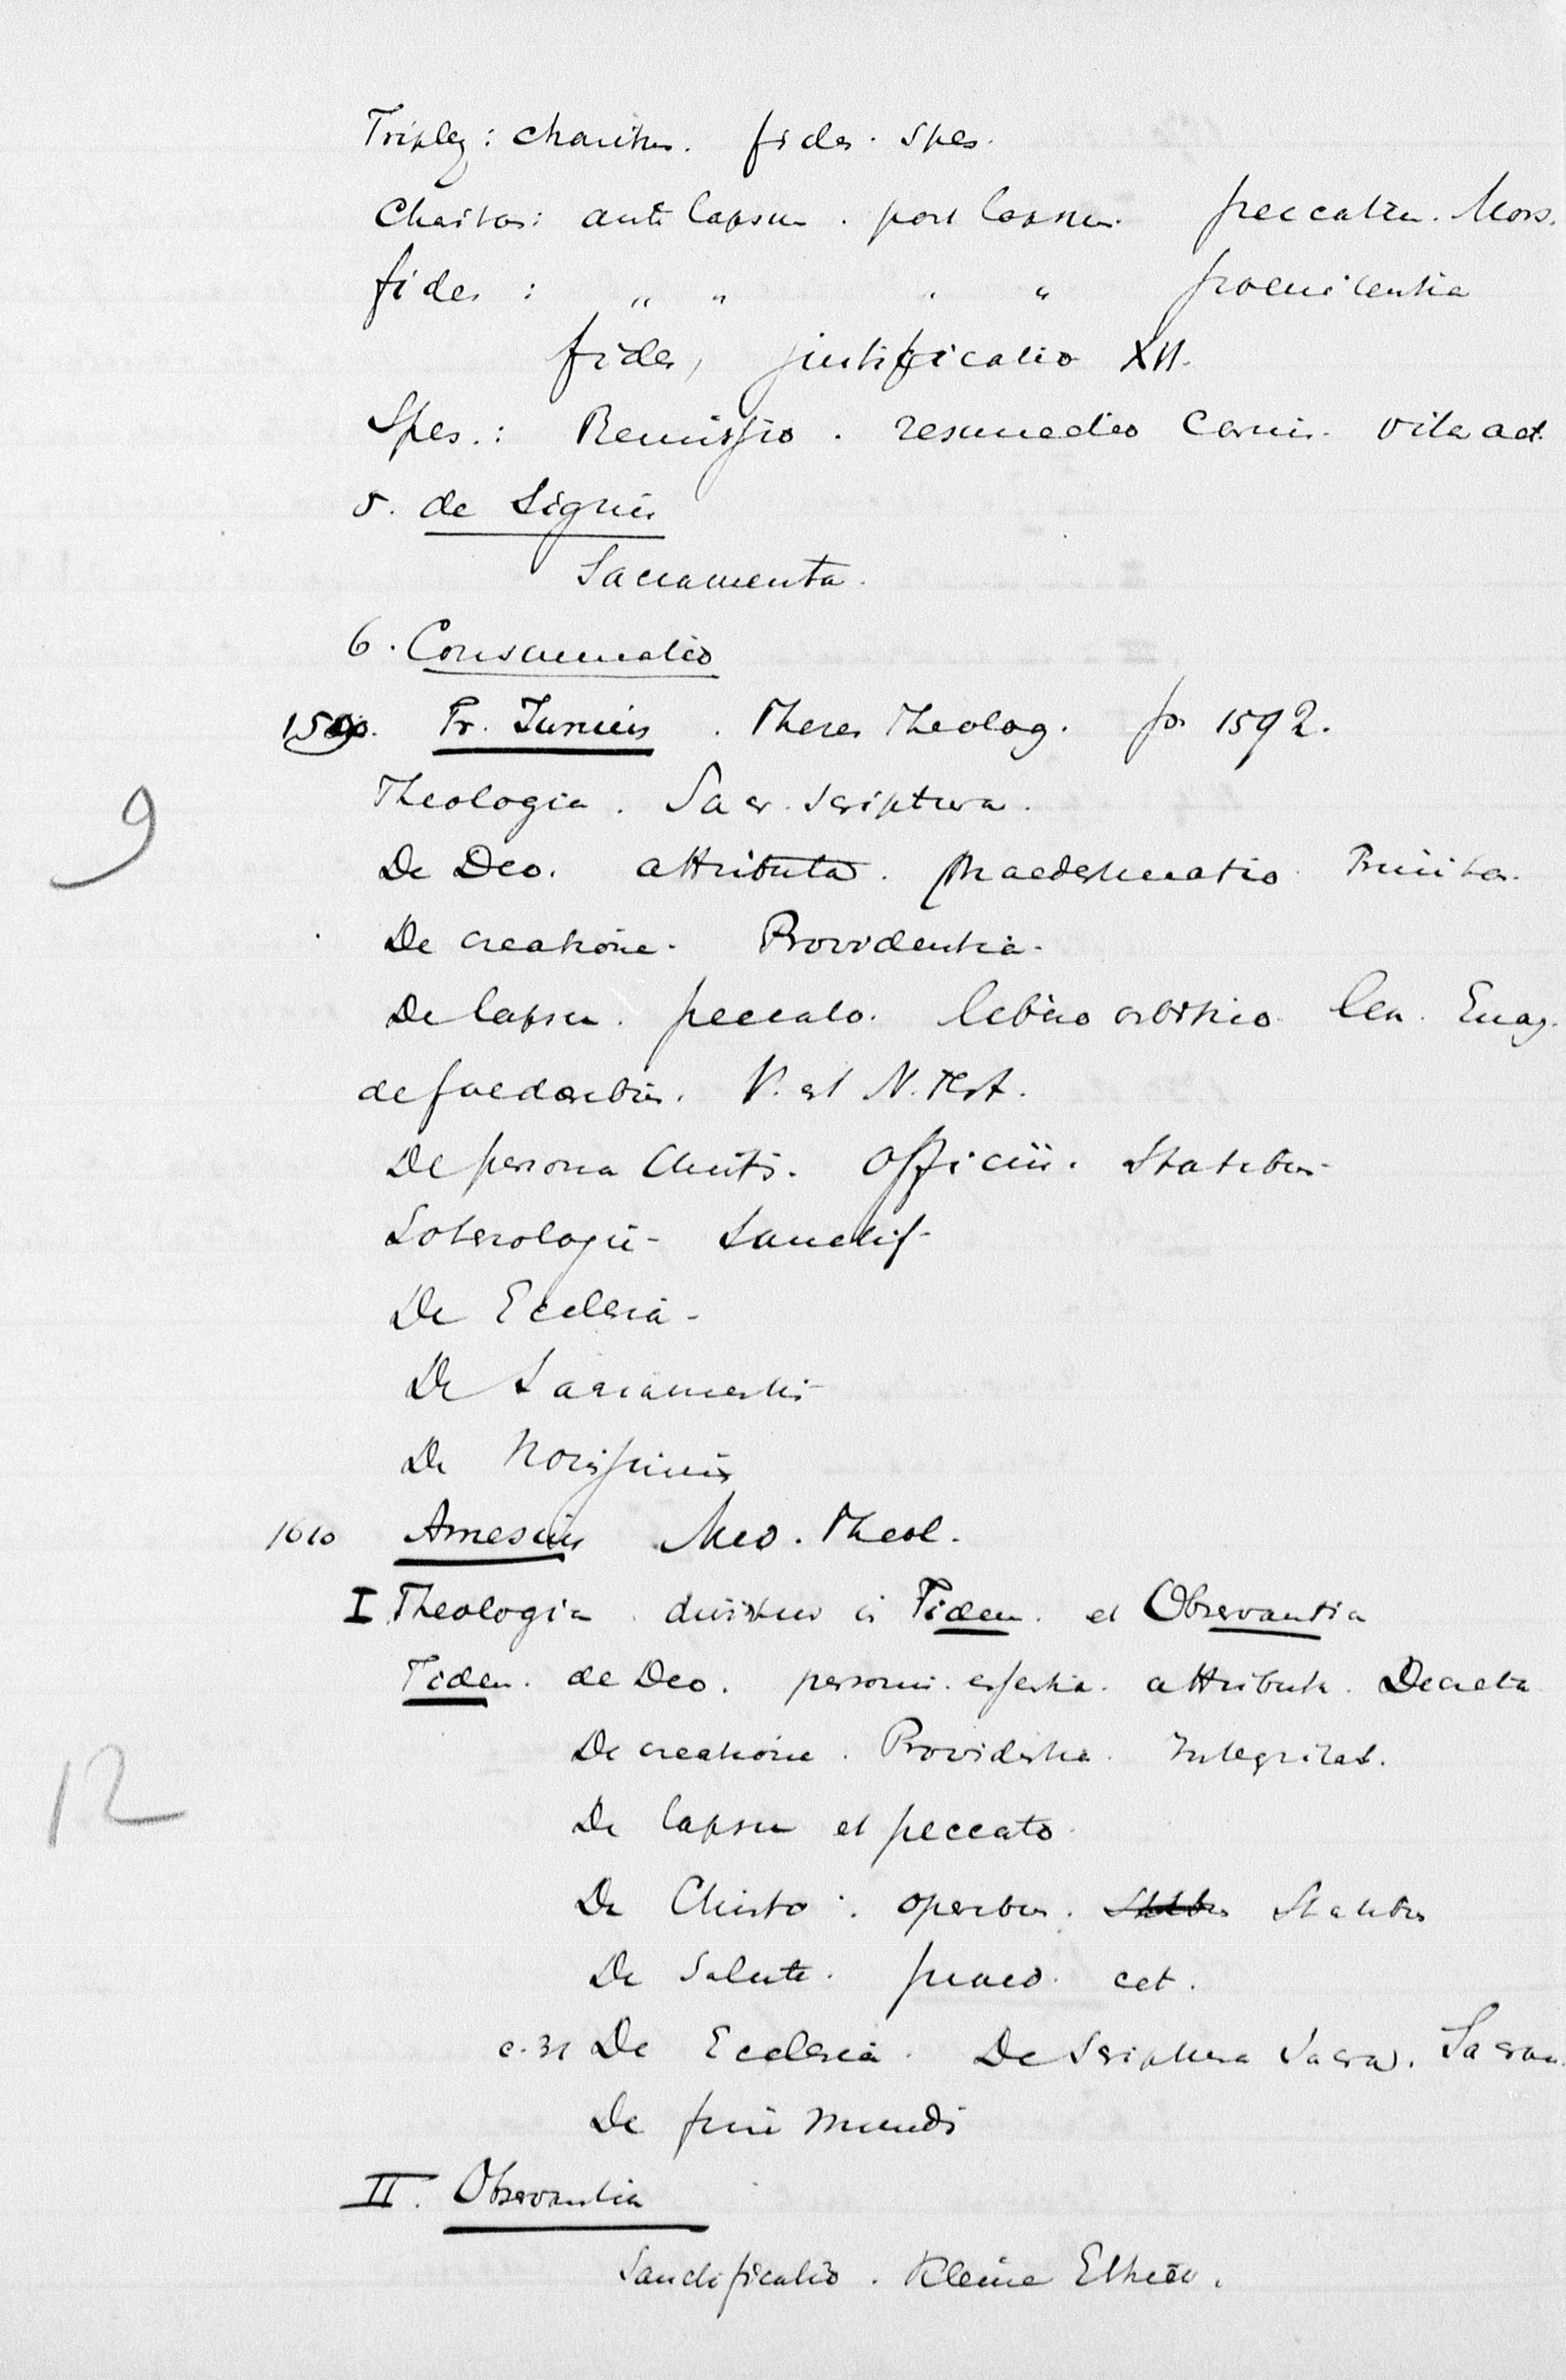 Triplex: charitas. fides. spes.
Charitas: ante lapsum. post lapsum. peccatum. Mors.
fides : " " " " poenitentia
fides, justificatio XII.
Spes.: Remissio. resurrectio carnis. vita aet.
5. de Signis
Sacramenta.
6. Consummatio
1590. Fr. Junius. Theses Theolog. 1592.
Theologia. Sacr. scriptura.
De Deo. attributa. praedestinatio Trinitas.
De creatione. Providentia.
De lapsu. peccato. libero arbitrio. Lex. Evag.
de foederibus. V. et N. Test.
De persona Christi. Officiis. Statibus
Soteriologie - Sanctif-
De Ecclesia -
De Sacramentis
De Novissimis
9
1610 Amesius Med. Theol.
I. Theologia dividitur in Fidem et Observantia
Fidem. de Deo. personis. essentia. attributa. Decreta
De creatione. Providentia. Integritat.
De lapsu et peccato.
De Christo: operibus. Statibus
De Salute. praed. cet.
c. 31 De Ecclesia. De Scriptura Sacra. Sacram.
De fine mundi
12
II. Observantia
Sanctificatio. Kleine Ethiek.